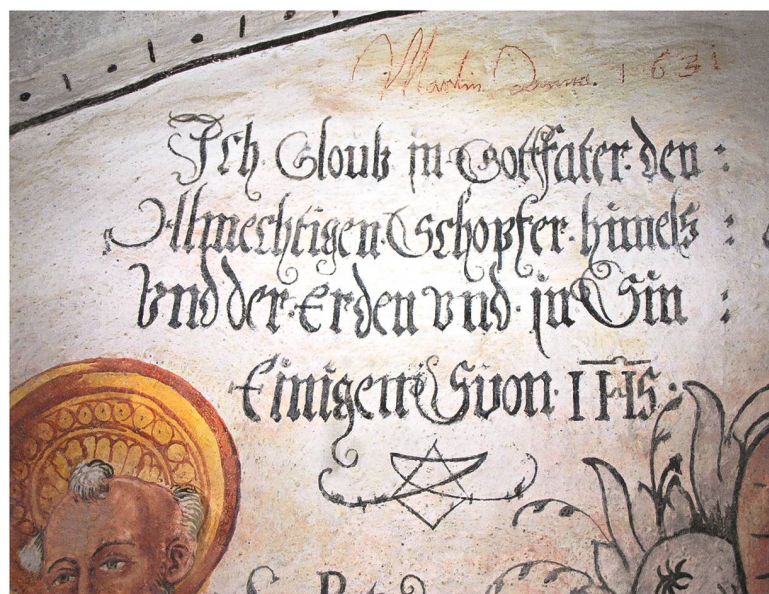 Martin 1631
Ich Gloub in Gott fater den :
Allmechtigen Schopfer himels :
Vnd der Erden vnd in Sin :
Einigen Suon IHS :